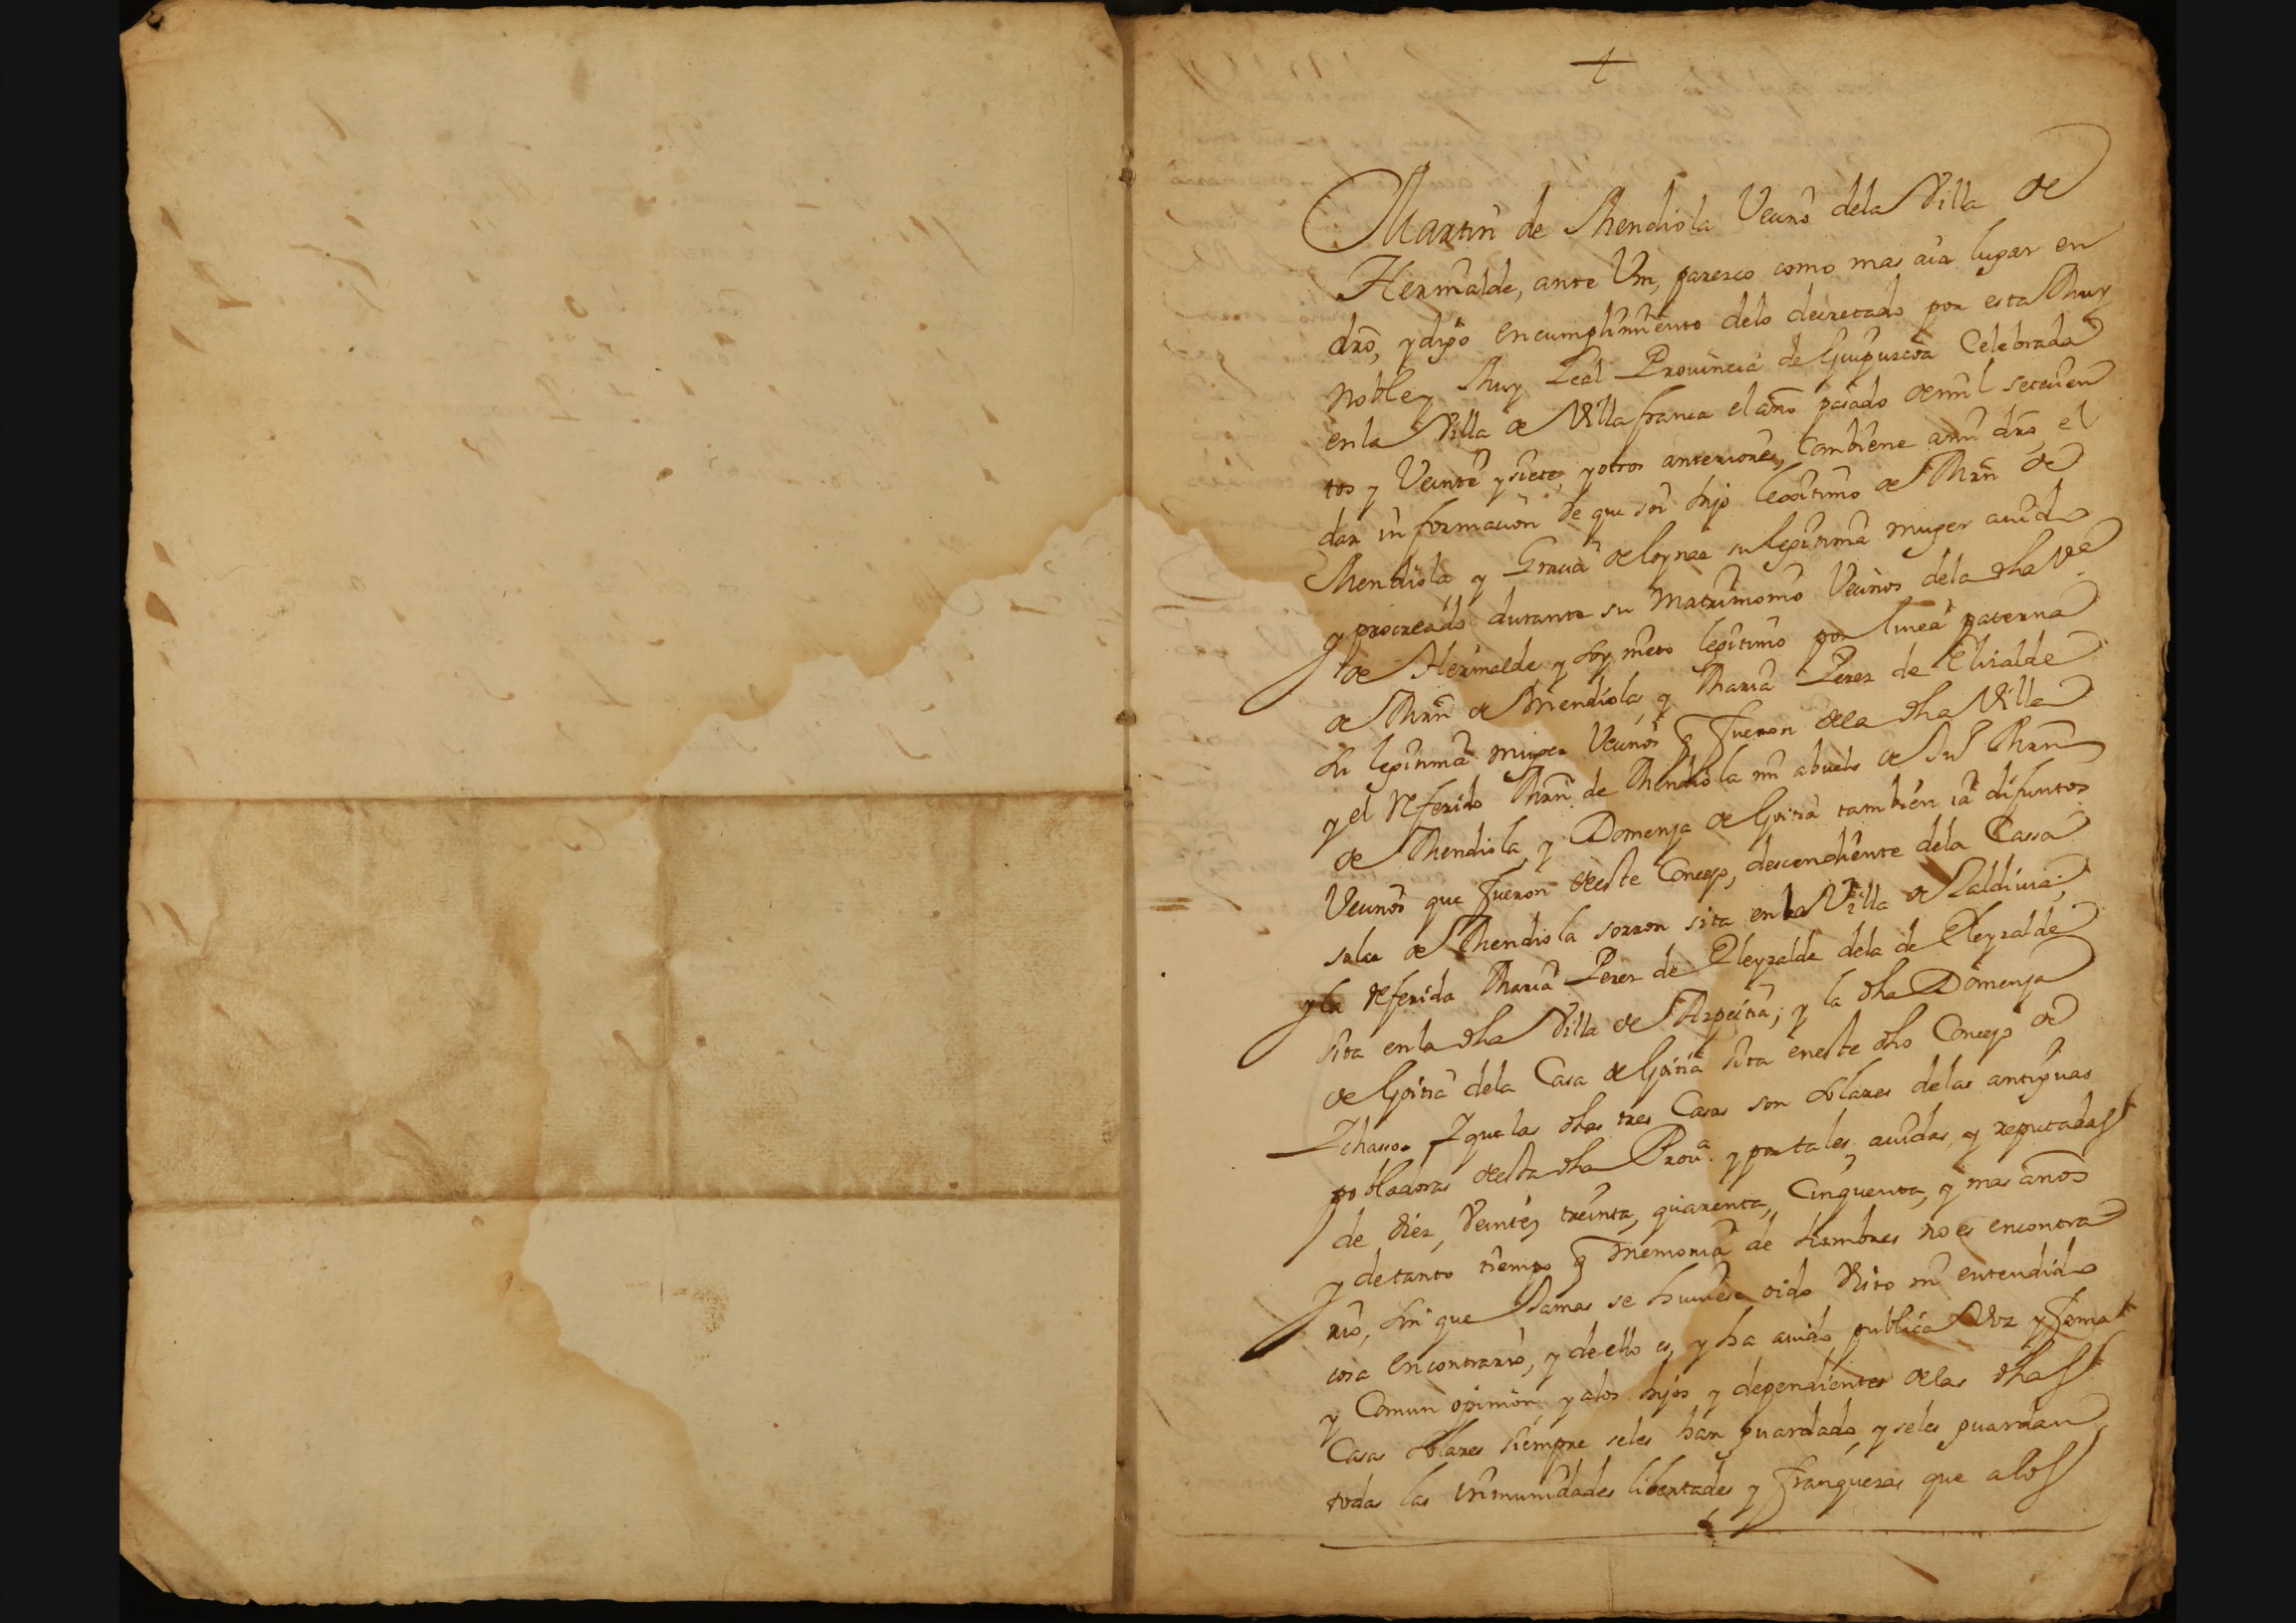 Martin de Mendiola Vecino dela Villa de
Hernialde, ante Vm, parezco como mas aia lugar en
dro, y digo en cumplimiento delo decretado por esta Muy
Noble y Muy Leal Prouincia de Guipuzcoa Celebrada
en la Villa de Villafranca el año pasado de mil setecien
tos y Veinte y siete, y otros anteriores, Combiene a mi dro el
dar informacion de que soi hijo legitimo de Mrn de
Mendiola y Gracia de loynaz su legitima muger auido
y procreado durante su Matrimonio Vecinos dela dha Va
de Hernialde y soy nieto legitimo por linea paterna
de Mrn de Mendiola, y Maria Perez de Elisalde
su legitima muger Vecinos q fueron dela dha Villa
y el referido Mrn de Mendiola mi abuelo de Mrn
de Mendiola, y Domenja de Goitia tambien ia difuntos
Vecinos que fueron deeste Concejo, descendiente dela Cassa
solar de Mendiola sorron sita en la Villa de Zaldiuia;
y la referida Maria Perez de Eleyzalde dela de Eleyzalde
sita en la dha Villa de Azpeitia; y la dha Domenja
de Goitia dela Casa de Goitia sita eneste dho Concejo de
Ychasso. Y que las dhas tres Casas son solares delas antiguas
pobladoras desta dha Proua. y por tales auidas, y reputadas
de diez, Veinte, treinta, quarenta, Cinquenta, y mas años
y de tanto tiempo q memoria de hombres no es encontra
rio, sin que Jamas se huuiese oido Visto ni entendido
cosa en contrario, y de ello es, y ha auido publica Voz y fama
y Comun opinion, y alos hijos y dependientes delas dhas
Casas solares siempre seles han guardado, y seles guardan
todas las inmunidades libertades y franquezas que alos